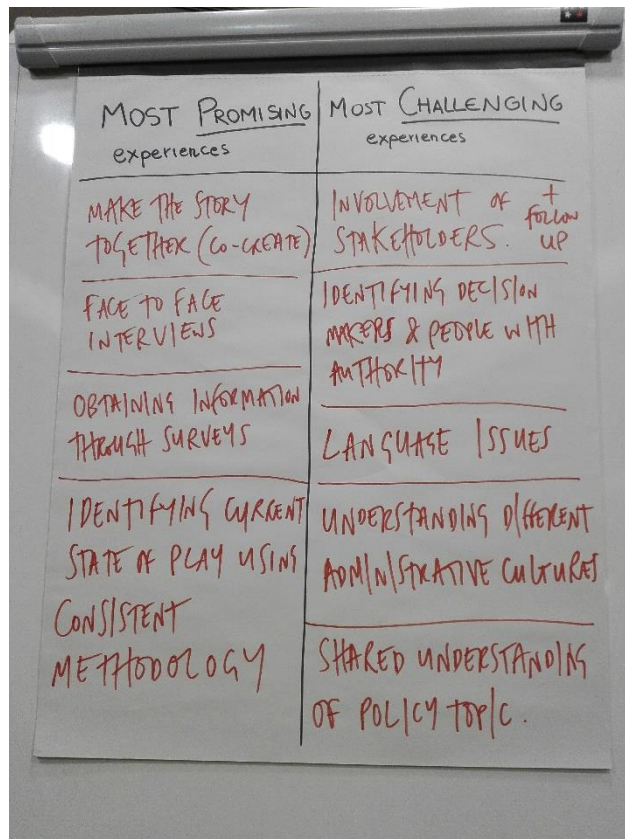 MOST PROMISING
experiences
MAKE THE STORY
TOGETHER (CO-CREATE)
FACE TO FACE
INTERVIEWS
OBTAINING INFORMATION
THROUGH SURVEYS
IDENTIFYING CURRENT
STATE OF PLAY USING
CONSISTENT
METHODOLOGY
MOST CHALLENGING
experiences
INVOLVEMENT OF
STAKEHOLDERS.
+
FOLLOW
UP
IDENTIFYING DECISION
MAKERS & PEOPLE WITH
AUTHORITY
LANGUAGE ISSUES
UNDERSTANDING DIFFERENT
ADMINISTRATIVE CULTURES
SHARED UNDERSTANDING
OF POLICY TOPIC.